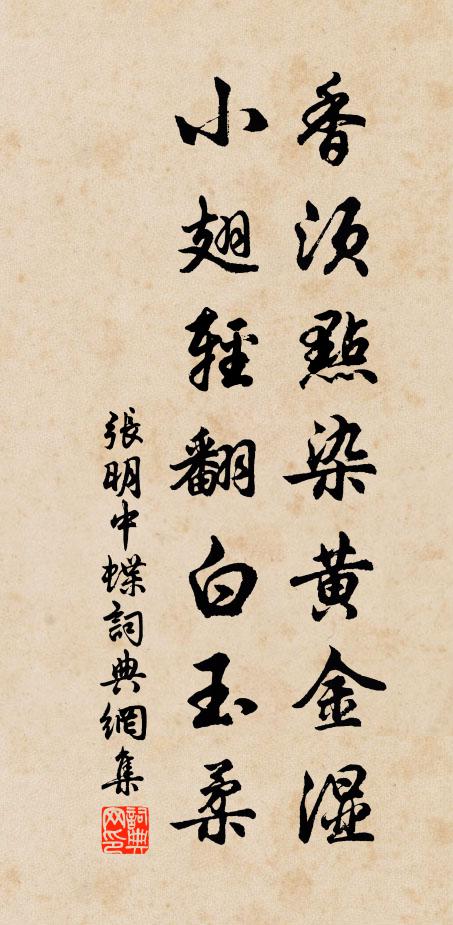 香須點染黄金湿
小翅輕翻白玉柔
張明中蝶詞典網集
詞典网印